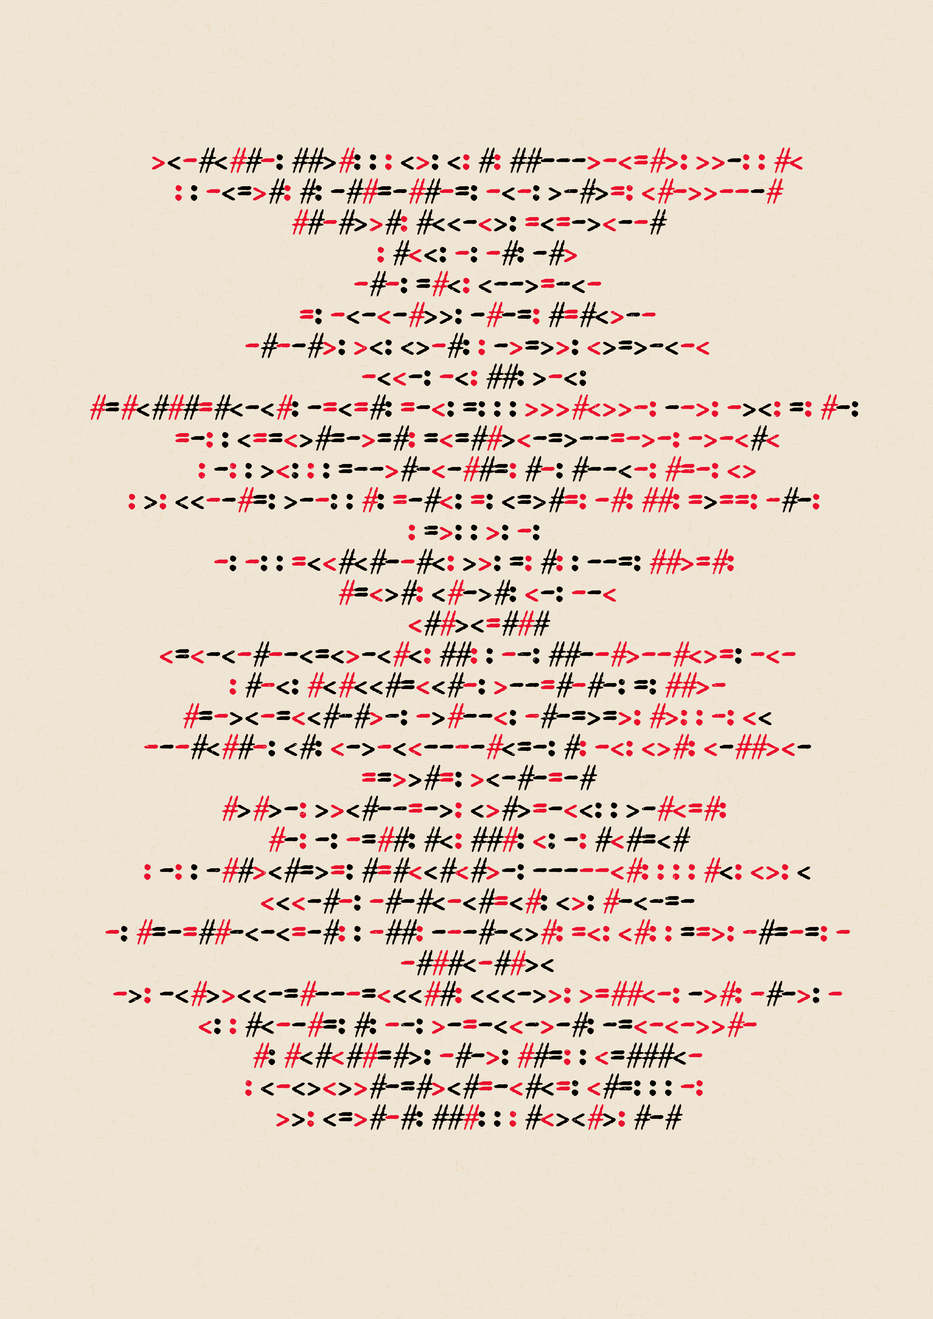 ><-#<##-: ##>#: : : <>: <: #: ##--->-<=#>: >>-: : #<
: : -<=>#: #: -##=-##-=: -<-: >-#>=: <#->>---#
##-#>>#: #<<-<>: =<=-><--#
: #<<: -: -#: -#>
-#-: =#<: <-->=-<-
=: -<-<-#>>: -#-=: #=#<>--
-#--#>: ><: <>-#: : ->=>>: <>=>-<-<
-<<-: -<: ##: >-<:
#=#<###=#<-<#: -=<=#: =-<: =: : : >>>#<>>-: -->: -><: =: #-:
=-: : <==<>#=->=#: =<=##><-=>--=->-: ->-<#<
: -: : ><: : : =-->#-<-##=: #-: #--<-: #=-: <>
: >: <<--#=: >--: : #: =-#<: =: <=>#=: -#: ##: =>==: -#-:
: =>: : >: -:
-: -: : =<<#<#--#<: >>: =: #: : --=: ##>=#:
#=<>#: <#->#: <-: --<
<##><=###
<=<-<-#--<=<>-<#<: ##: : --: ##--#>--#<>=: -<-
: #-<: #<#<<#=<<#-: >--=#-#-: =: ##>-
#=-><-=<<#-#>-: ->#--<: -#-=>=>: #>: : -: <<
---#<##-: <#: <->-<<----#<=-: #: -<: <>#: <-##><-
==>>#=: ><-#-=-#
#>#>-: >><#--=->: <>#>=-<<: : >-#<=#:
#-: -: -=##: #<: ###: <: -: #<#=<#
: -: : -##><#=>=: #=#<<#<#>-: -----<#: : : : #<: <>: <
<<<-#-: -#-#<-<#=<#: <>: #-<-=-
-: #=-=##-<-<=-#: : -##: ---#-<>#: =<: <#: : ==>: -#=-=: -
-###<-##><
->: -<#>><<-=#---=<<<##: <<<->>: >=##<-: ->#: -#->: -
<: : #<--#=: #: --: >-=-<<->-#: -=<-<->>#-
#: #<#<##=#>: -#->: ##=: : <=###<-
: <-<><>>#-=#><#=-<#<=: <#=: : : -:
>>: <=>#-#: ###: : : #<><#>: #-#